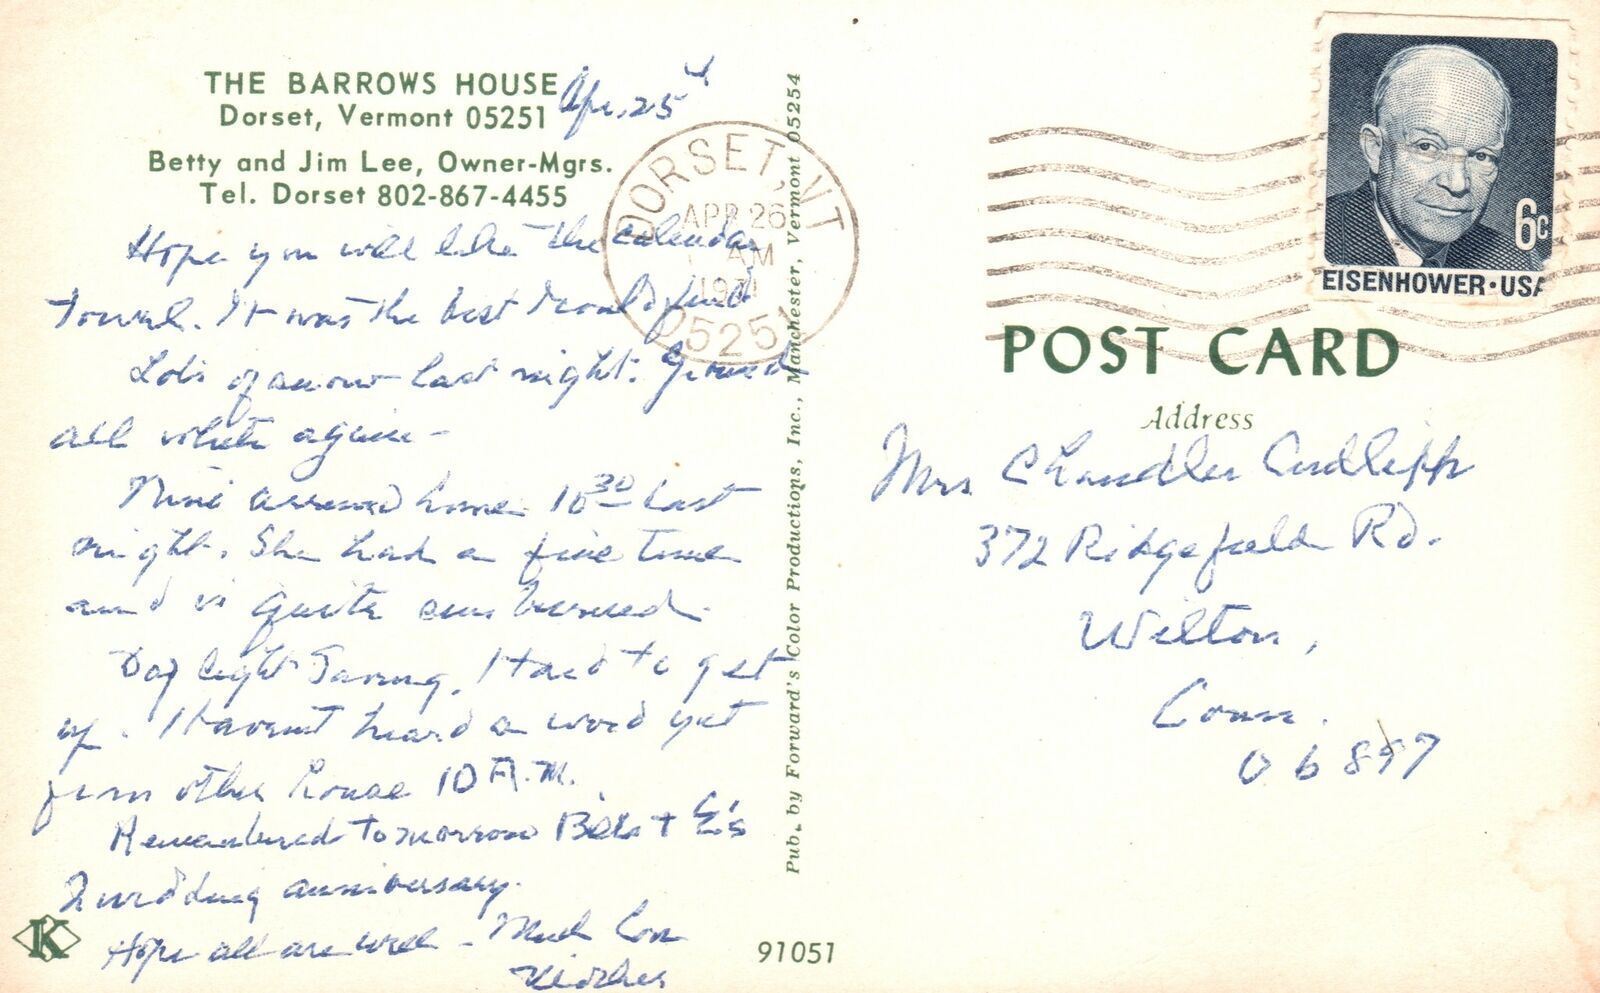 THE BARROWS HOUSE
Dorset, Vermont 05251
Apr. 25th
Betty and Jim Lee, Owner-Mgrs.
Tel. Dorset 802-867-4455
Hope you will like the calendar
towel. It was the best I could find
Lots of snow last night. Ground
all white again -
Mimi arrived home 10 30 last
night. She had a fine time
and is quite sun burned.
Day light Saving. I had to get
up. I Havent heard a word yet
from other house 10 A.M.
Remembered tomorrow + E's
wedding anniversary.
Hope all are well - Much Love
K
DORSET, VT
APR 26
AM
1971
05251
Pub. by Forward's Color Productions, Inc., Manchester, Vermont 05254
91051
6c
EISENHOWER·USA
POST CARD
Address
Mrs Chandler Cudlipp
372 Ridgefield Rd.
Wilton,
Conn.
06897